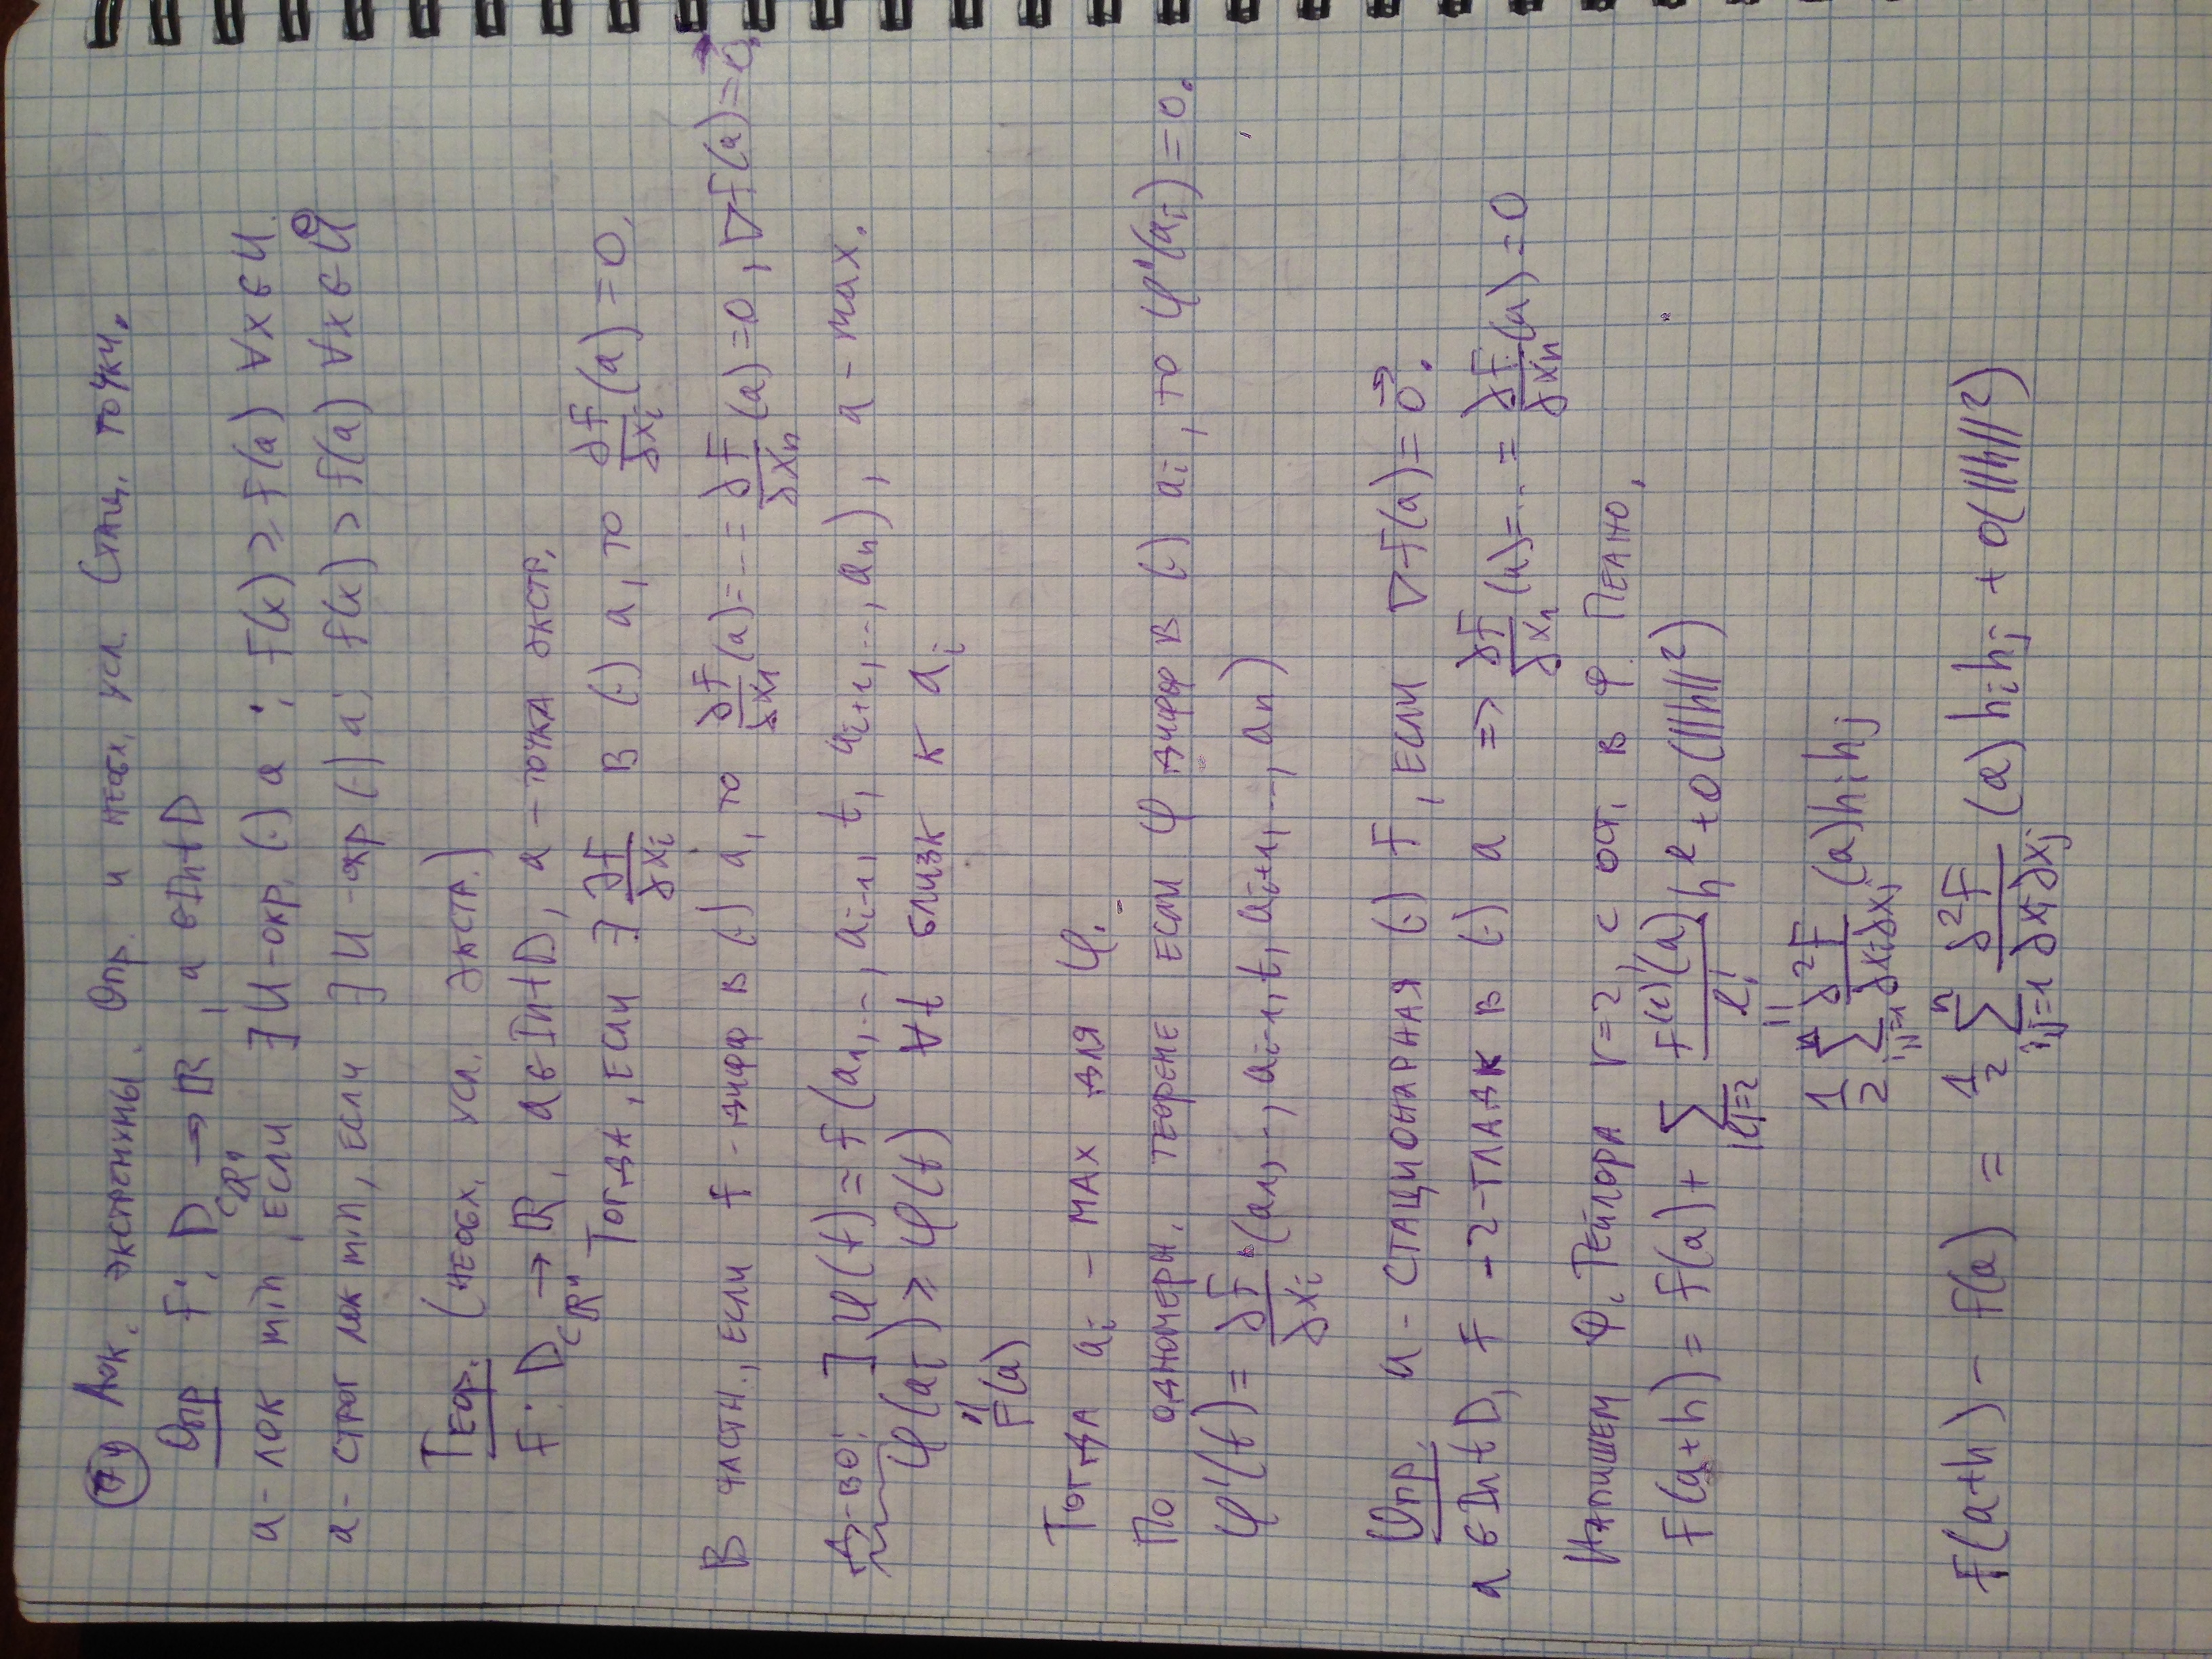 74 Лок. экстремумы. Опр. и необх. усл. Стац. точки.
Опр f: D ⊂ ℝⁿ → ℝ, a ∈ Int D
a - лок min, если ∃ U - окр. (·) a : f(x) ≥ f(a) ∀x ∈ U.
a - строг лок min, если ∃ U - окр (·) a: f(x) > f(a) ∀x ∈ Ů
Теор. (необх. усл. экстр.)
f: D ⊂ ℝⁿ → ℝ, a ∈ Int D, a - точка экстр.
Тогда, если ∃ ∂f/∂xᵢ в (·) a, то ∂f/∂xᵢ (a) = 0.
В частн., если f - дифф в (·) a, то ∂f/∂x₁ (a) = ... = ∂f/∂xₙ (a) = 0, ∇f(a) = 0⃗.
Д-во: ] φ(t) = f(a₁, ..., aᵢ₋₁, t, aᵢ₊₁, ..., aₙ), a - max.
φ(aᵢ) ≥ φ(t) ∀t близк к aᵢ
"
f(a)
Тогда aᵢ - мах для φ.
По одномерн. теореме если φ дифф в (·) aᵢ, то φ'(aᵢ) = 0.
φ'(t) = ∂f/∂xᵢ (a₁, ..., aᵢ₋₁, t, aᵢ₊₁, ..., aₙ)
Опр. a - стационарная (·) f, если ∇f(a) = 0⃗.
a ∈ Int D, f - 2-гладк в (·) a => ∂f/∂x₁ (a) = ... = ∂f/∂xₙ (a) = 0
Напишем Ф. Тейлора r=2, с ост. в ф. Пеано.
f(a+h) = f(a) + ∑_{|l|=2} f^{(l)}(a)/l! h^l + o(||h||²)
"
1/2 ∑_{i,j=1}^{n} ∂²f/∂xᵢ∂xⱼ (a) hᵢ hⱼ
f(a+h) - f(a) = 1/2 ∑_{i,j=1}^{n} ∂²f/∂xᵢ∂xⱼ (a) hᵢ hⱼ + o(||h||²)